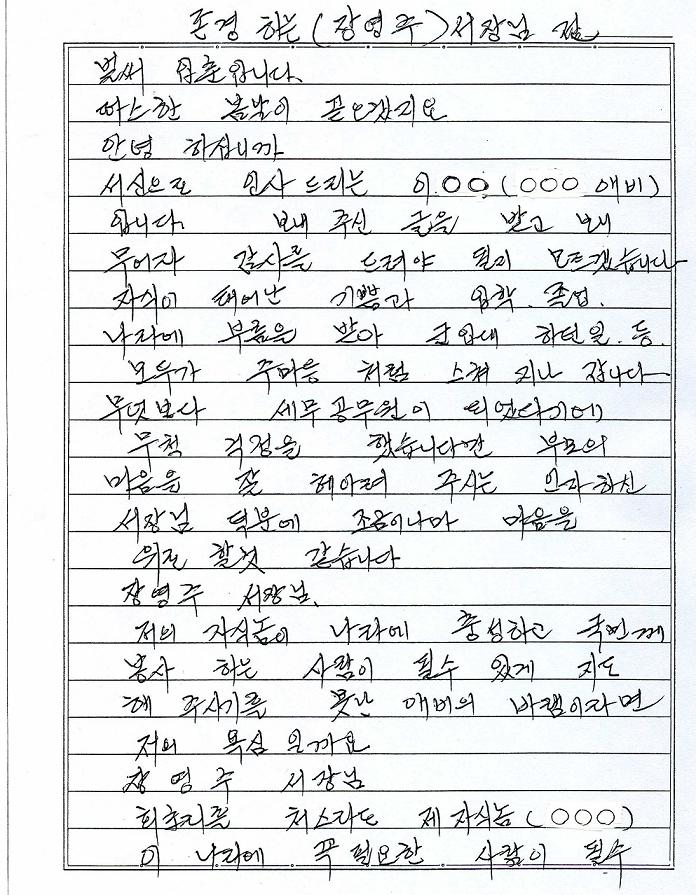 존경 하는 (장영주) 서장님 께
벌써 입춘입니다.
따스한 봄날이 곧오겠지요
안녕 하십니까
서신으로 인사 드리는 이○○ (○○○ 애비)
입니다. 보내 주신 글을 받고 보내
무어라 감사를 드려야 될지 모르겠습니다
자식이 태어난 기쁨과 입학. 졸업.
나라에 부름을 받아 군입대 하던일. 등.
모두가 주마등 처럼 스쳐 지나 갑니다
무엇보다 세무공무원이 되었다기에
무척 걱정을 했습니다만 부모의
마음을 잘 헤아려 주시는 인자하신
서장님 덕분에 조금이나마 마음을
위안 할것 같습니다
장영주 서장님.
저의 자식놈이 나라에 충성하고 국민께
봉사 하는 사람이 될수 있게 지도
해 주시기를 못난 애비의 바램이라면
저의 욕심 일까요
장영주 서장님
회초리를 쳐스라도 제자식놈 (○○○)
이 나라에 꼭필요한 사람이 될수